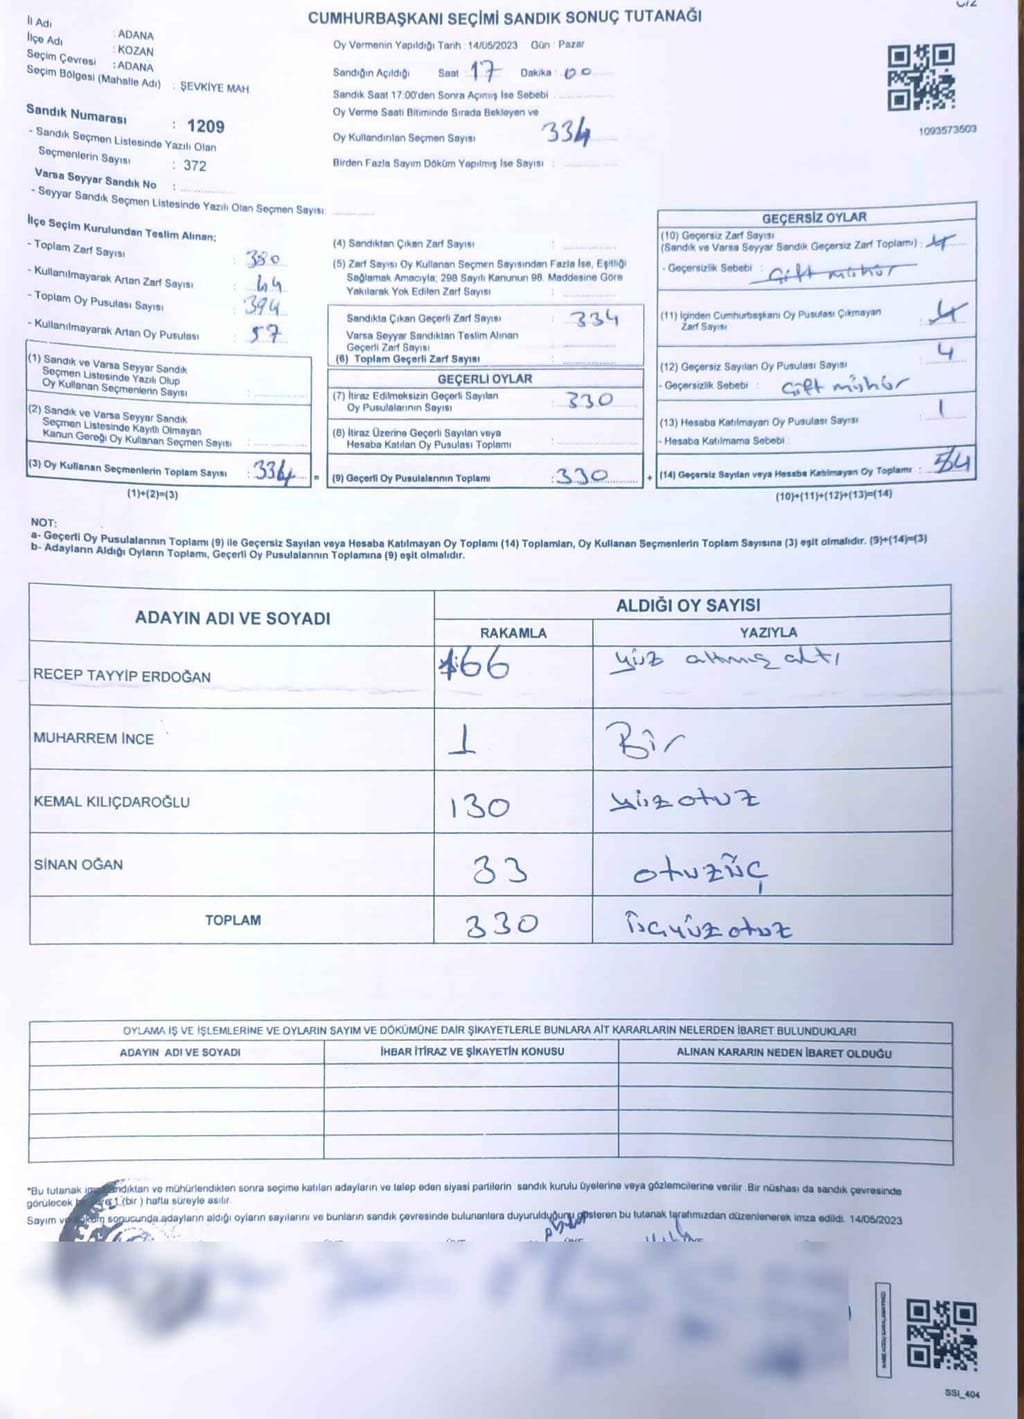 C/2
CUMHURBAŞKANI SEÇİMİ SANDIK SONUÇ TUTANAĞI
İl Adı : ADANA
İlçe Adı : KOZAN
Seçim Çevresi : ADANA
Seçim Bölgesi (Mahalle Adı) : ŞEVKİYE MAH.
Sandık Numarası : 1209
- Sandık Seçmen Listesinde Yazılı Olan
Seçmenlerin Sayısı : 372
Varsa Seyyar Sandık No :
- Seyyar Sandık Seçmen Listesinde Yazılı Olan Seçmen Sayısı:
Oy Vermenin Yapıldığı Tarih : 14/05/2023 Gün : Pazar
Sandığın Açıldığı Saat : 17 Dakika : 00
Sandık Saat 17:00'den Sonra Açımış İse Sebebi :
Oy Verme Saati Bitiminde Sırada Bekleyen ve
Oy Kullandırılan Seçmen Sayısı : 334
Birden Fazla Sayım Döküm Yapılmış İse Sayısı :
1093573503
İlçe Seçim Kurulundan Teslim Alınan;
- Toplam Zarf Sayısı : 380
- Kullanılmayarak Artan Zarf Sayısı : 44
- Toplam Oy Pusulası Sayısı : 394
- Kullanılmayarak Artan Oy Pusulası : 57
(1) Sandık ve Varsa Seyyar Sandık
Seçmen Listesinde Yazılı Olup
Oy Kullanan Seçmenlerin Sayısı :
(2) Sandık ve Varsa Seyyar Sandık
Seçmen Listesinde Kayıtlı Olmayan
Kanun Gereği Oy Kullanan Seçmen Sayısı :
(3) Oy Kullanan Seçmenlerin Toplam Sayısı : 334 =
(1)+(2)=(3)
(4) Sandıktan Çıkan Zarf Sayısı :
(5) Zarf Sayısı Oy Kullanan Seçmen Sayısından Fazla İse, Eşitliği
Sağlamak Amacıyla; 298 Sayılı Kanunun 98. Maddesine Göre
Yakılarak Yok Edilen Zarf Sayısı :
Sandıkta Çıkan Geçerli Zarf Sayısı : 334
Varsa Seyyar Sandıktan Teslim Alınan
Geçerli Zarf Sayısı :
(6) Toplam Geçerli Zarf Sayısı :
GEÇERLİ OYLAR
(7) İtiraz Edilmeksizin Geçerli Sayılan
Oy Pusulalarının Sayısı : 330
(8) İtiraz Üzerine Geçerli Sayılan veya
Hesaba Katılan Oy Pusulası Toplamı :
(9) Geçerli Oy Pusulalarının Toplamı : 330 +
GEÇERSİZ OYLAR
(10) Geçersiz Zarf Sayısı
(Sandık ve Varsa Seyyar Sandık Geçersiz Zarf Toplamı) : 4
- Geçersizlik Sebebi : Çift mühür
(11) İçinden Cumhurbaşkanı Oy Pusulası Çıkmayan
Zarf Sayısı : 4
(12) Geçersiz Sayılan Oy Pusulası Sayısı : 4
- Geçersizlik Sebebi : Çift mühür
(13) Hesaba Katılmayan Oy Pusulası Sayısı : 1
- Hesaba Katılmama Sebebi :
(14) Geçersiz Sayılan veya Hesaba Katılmayan Oy Toplamı :
(10)+(11)+(12)+(13)=(14)
NOT:
a- Geçerli Oy Pusulalarının Toplamı (9) ile Geçersiz Sayılan veya Hesaba Katılmayan Oy Toplamı (14) Toplamları, Oy Kullanan Seçmenlerin Toplam Sayısına (3) eşit olmalıdır. (9)+(14)=(3)
b- Adayların Aldığı Oyların Toplamı, Geçerli Oy Pusulalarının Toplamına (9) eşit olmalıdır.
ADAYIN ADI VE SOYADI ALDIĞI OY SAYISI
RAKAMLA YAZIYLA
RECEP TAYYİP ERDOĞAN 166 yüz altmış altı
MUHARREM İNCE 1 Bir
KEMAL KILIÇDAROĞLU 130 yüzotuz
SİNAN OĞAN 33 otuzüç
TOPLAM 330 üçyüzotuz
OYLAMA İŞ VE İŞLEMLERİNE VE OYLARIN SAYIM VE DÖKÜMÜNE DAİR ŞİKAYETLERLE BUNLARA AİT KARARLARIN NELERDEN İBARET BULUNDUKLARI
ADAYIN ADI VE SOYADI İHBAR İTİRAZ VE ŞİKAYETİN KONUSU ALINAN KARARIN NEDEN İBARET OLDUĞU
*Bu tutanak imzalandıktan ve mühürlendikten sonra seçime katılan adayların ve talep eden siyasi partilerin sandık kurulu üyelerine veya gözlemcilerine verilir. Bir nüshası da sandık çevresinde
görülecek bir yere 1 (bir ) hafta süreyle asılır.
Sayım ve döküm sonucunda adayların aldığı oyların sayılarını ve bunların sandık çevresinde bulunanlara duyurulduğunu gösteren bu tutanak tarafımızdan düzenlenerek imza edildi. 14/05/2023
SSİ_404